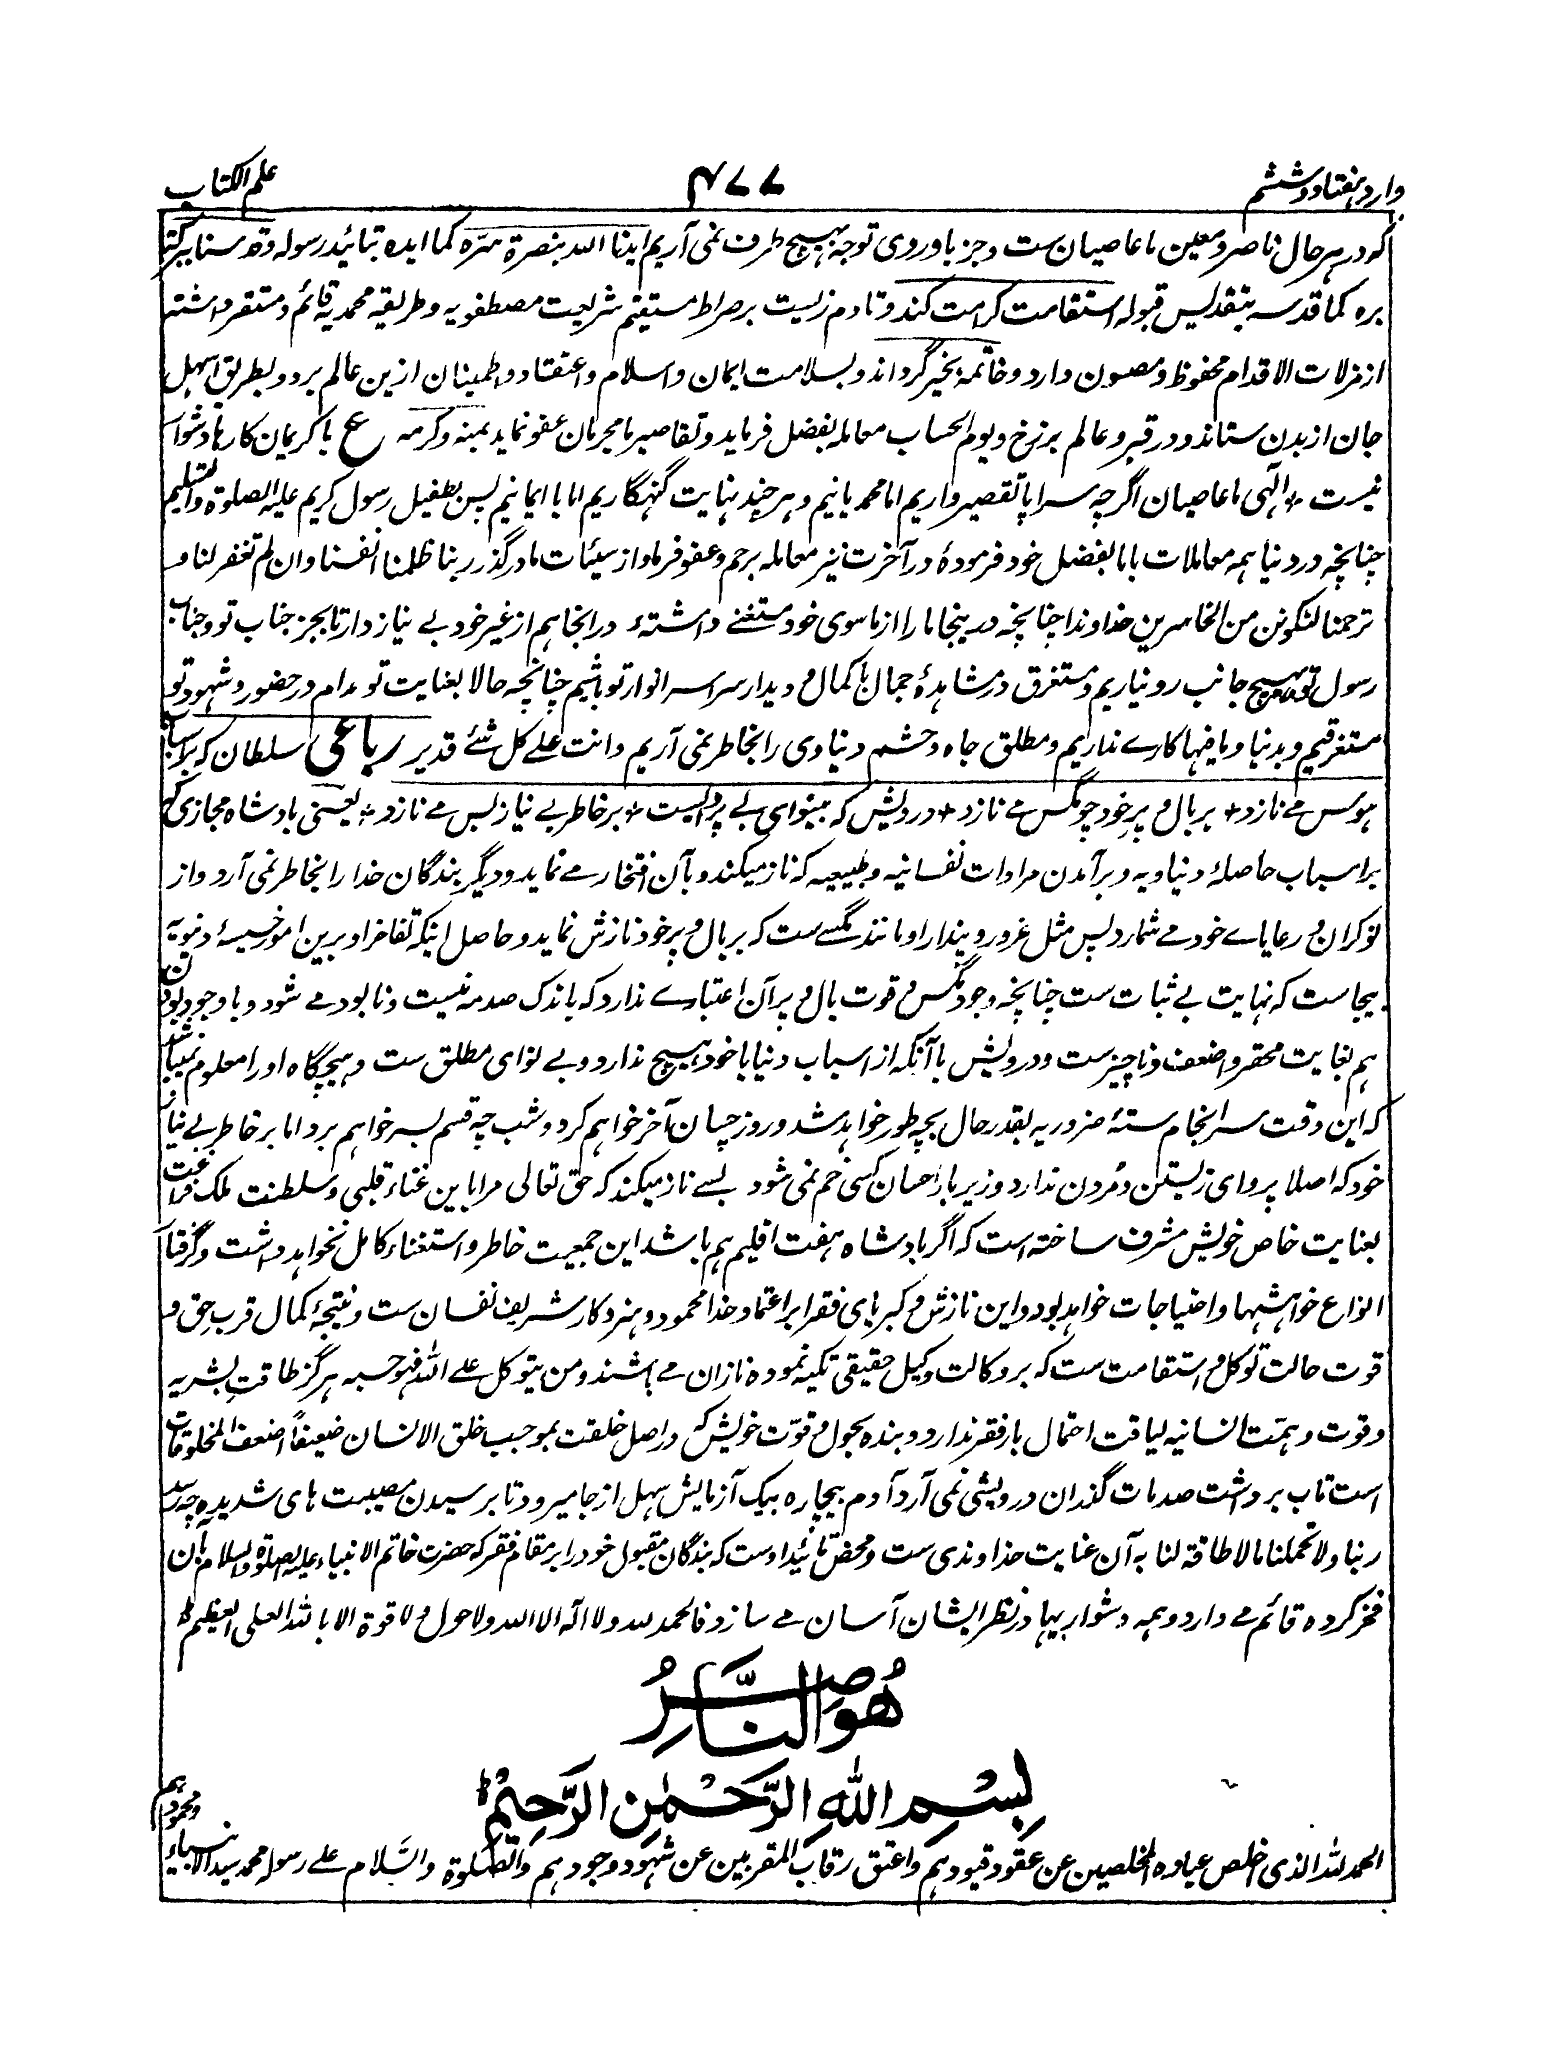 وارد ہفتاد و ششم ۴۷۷ علم الکتاب
که در ہر حال ناصر و معین ما عاصیان ست و جز باو روی توجہ بہیچ طرف نمی آریم ایدنا اللہ بنصرۃ سرّہ کما ایدہ بتائید رسولہ و قدسنا ببرکۃ
برہ کما قدسہ بتقدیس قبولہ استقامت کرامت کند و تا دم زیست بر صراط مستقیم شریعت مصطفویہ و طریقہ محمدیہ قائم و مستقر داشتہ
از مزلات الاقدام محفوظ و مصون دارد و خاتمہ بخیر گرداند و بسلامت ایمان و اسلام و اعتقاد و اطمینان ازین عالم برد و بطریق اسہل
جان از بدن ستاند و در قبر و عالم برزخ و یوم الحساب معاملہ بفضل فرماید و تقاصیر ما مجرمان عفو نماید بمنہ و کرمہ ع با کریمان کارہا دشوار
نیست * الٰہی ما عاصیان اگرچہ سراپا تقصیر واریم اما محمدیانیم و ہر چند نہایت گنہگاریم اما با ایمانیم پس بطفیل رسول کریم علیہ الصلوۃ والتسلیم
چنانچہ در دنیا ہمہ معاملات بابا بفضل خود فرمودۂ در آخرت نیز معاملہ برحم و عفو فرما و از سیئات ما درگذر ربنا ظلمنا انفسنا و ان لم تغفر لنا و
ترحمنا لنکونن من الخاسرین خداوندا چنانچہ درینجا ما را از ماسوی خود مستغنے داشتۂ در انجا ہم از غیر خود بے نیاز دار تا بجز جناب تو و جناب
رسول تو بہیچ جانب رو نیاریم و مستغرق در مشاہدۂ جمال با کمال و دیدار سراسر انوار تو باشیم چنانچہ حالا بعنایت تو مدام در حضور و شہود تو
مستغرقیم و بدنیا و مافیہا کارے نداریم و مطلق جاہ و حشم دنیاوی را بخاطر نمی آریم و انت علے کل شئے قدیر رباعی سلطان کہ بر اسباب
ہوس مے نازد * بر بال و پر خود چو مگس مے نازد * درویش کہ بینوای بے پرواست * بر خاطر بے نیاز بس مے نازد * یعنی بادشاہ مجازی کہ
بر اسباب حاصلۂ دنیاویہ و برآمدن مرادات نفسانیہ و طبیعیہ کہ ناز میکند و بآن افتخار مے نماید و دیگر بندگان خدا را بخاطر نمی آرد و از
نوکران و رعایاے خود مے شمارد پس مثل غرور و پندار او مانند مگسے ست کہ بر بال و پر خود نازش نماید و حاصل اینکہ تفاخر او برین امور خسیسۂ دنیویہ
بیجاست کہ نہایت بے ثبات ست چنانچہ وجود مگس و قوت بال و پر آن اعتبارے ندارد کہ باندک صدمہ نیست و نابود مے شود و با وجود بودن
ہم بغایت محقر و اضعف و ناچیز ست و درویش با آنکہ از اسباب دنیا با خود ہیچ ندارد و بے نوای مطلق ست و ہیچگاہ او را معلوم نمیباشد
کہ این وقت سرانجام ستۂ ضروریہ بقدر حال بچہ طور خواہد شد و روز چسان آخر خواہم کرد و شب چہ قسم بسر خواہم برد اما بر خاطر بے نیاز
خود کہ اصلا پروای زیستن و مُردن ندارد و زیر بار احسان کسی خم نمی شود بسے ناز میکند کہ حق تعالی مرا باین غناء قلبی و سلطنت ملک قناعت
بعنایت خاص خویش مشرف ساختہ است کہ اگر بادشاہ ہفت اقلیم ہم باشد این جمعیت خاطر و استغناء کامل نخواہد داشت و گرفتار
انواع خواہشہا و احتیاجات خواہد بود و این نازش و کبریای فقرا بر اعتماد خدا محمود و ہنر و کار شریف نفسان ست و نتیجۂ کمال قرب حق و
قوت حالت توکل و استقامت ست کہ بر وکالت وکیل حقیقی تکیہ نمودہ نازان مے باشند و من یتوکل علے اللہ فہو حسبہ ہرگز طاقت بشریہ
و قوت و ہمت انسانیہ لیاقت احتمال بار فقر ندارد و بندہ بحول و قوّت خویش کہ در اصل خلقت بموجب خلق الانسان ضعیفاً اضعف المخلوقات
است تاب برداشت صدمات گذران درویشی نمی آرد آدم بیچارہ بیک آزمایش سہل از جا میرود تا برسیدن مصیبت ہای شدیدہ چہ رسد
ربنا ولا تحملنا مالا طاقۃ لنا بہ آن عنایت خداوندی ست و محض تائید اوست کہ بندگان مقبول خود را بر مقام فقر کہ حضرت خاتم الانبیاء علیہ الصلوۃ والسلام بآن
فخر کردہ قائم مے دارد و ہمہ دشواریہا در نظر ایشان آسان مے سازد فالحمد للہ ولا الہ الا اللہ ولا حول ولا قوۃ الا باللہ العلی العظیم
ھُوَ النَّاصِرُ
بِسْمِ اللّٰهِ الرَّحْمٰنِ الرَّحِیْمِ
الحمد للہ الذی اخلص عبادہ المخلصین عن عقود قیودہم و اعتق رقاب المقربین عن شہود وجودہم والصلوۃ والسَّلام علے رسولہ محمد سید الانبیاء
و محمودہم